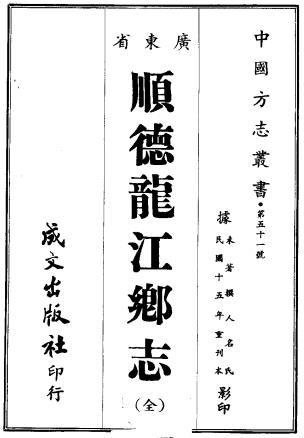 中國方志叢書・第五十一號
據
未著撰人名氏
民國十五年重刊本
影印
廣東省
順德龍江鄉志
(全)
成文出版社印行